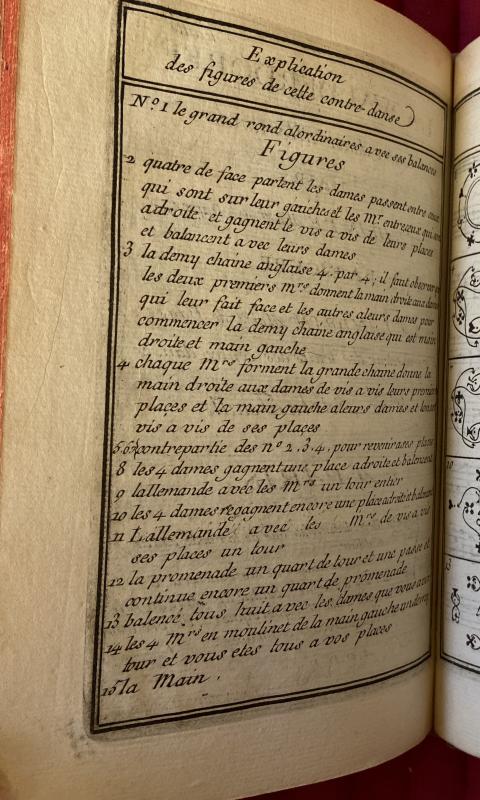 Explication
des figures de cette contre-danse
N.º 1 le grand rond alordinaires avec ses balances
Figures
2 quatre de face partent les dames passent entre ceux
qui sont sur leur gauches et les M.rs entre ceux qui sont
adroite et gagnent le vis a vis de leurs places
et balancent avec leurs dames
3 la demy chaine anglaise 4. par 4; il faut observer que
les deux premiers m.rs donnent la main droite aux dames
qui leur fait face et les autres aleurs dames pour
commencer la demy chaine anglaise qui est main
droite et main gauche
4 chaque M.rs forment la grande chaine donne la
main droite aux dames de vis a vis leurs premieres
places et la main gauche aleurs dames et
vis a vis de ses places
5.6.7 contrepartie des nº 2.3.4. pour revenir ases places
8 les 4 dames gagnent une place adroite et balencent
9 lallemande avec les M.rs un tour entier
10 les 4 dames regagnent encore une place adroite et balencent
11 Lallemande avec les M.rs de vis a vis
ses places un tour
12 la promenade un quart de tour et une passe et
continue encore un quart de promenade
13 balencé tous huit avec les dames que vous avez
14 les 4 M.rs en moulinet de la main gauche un demy
tour et vous etes tous a vos places
15 la Main.